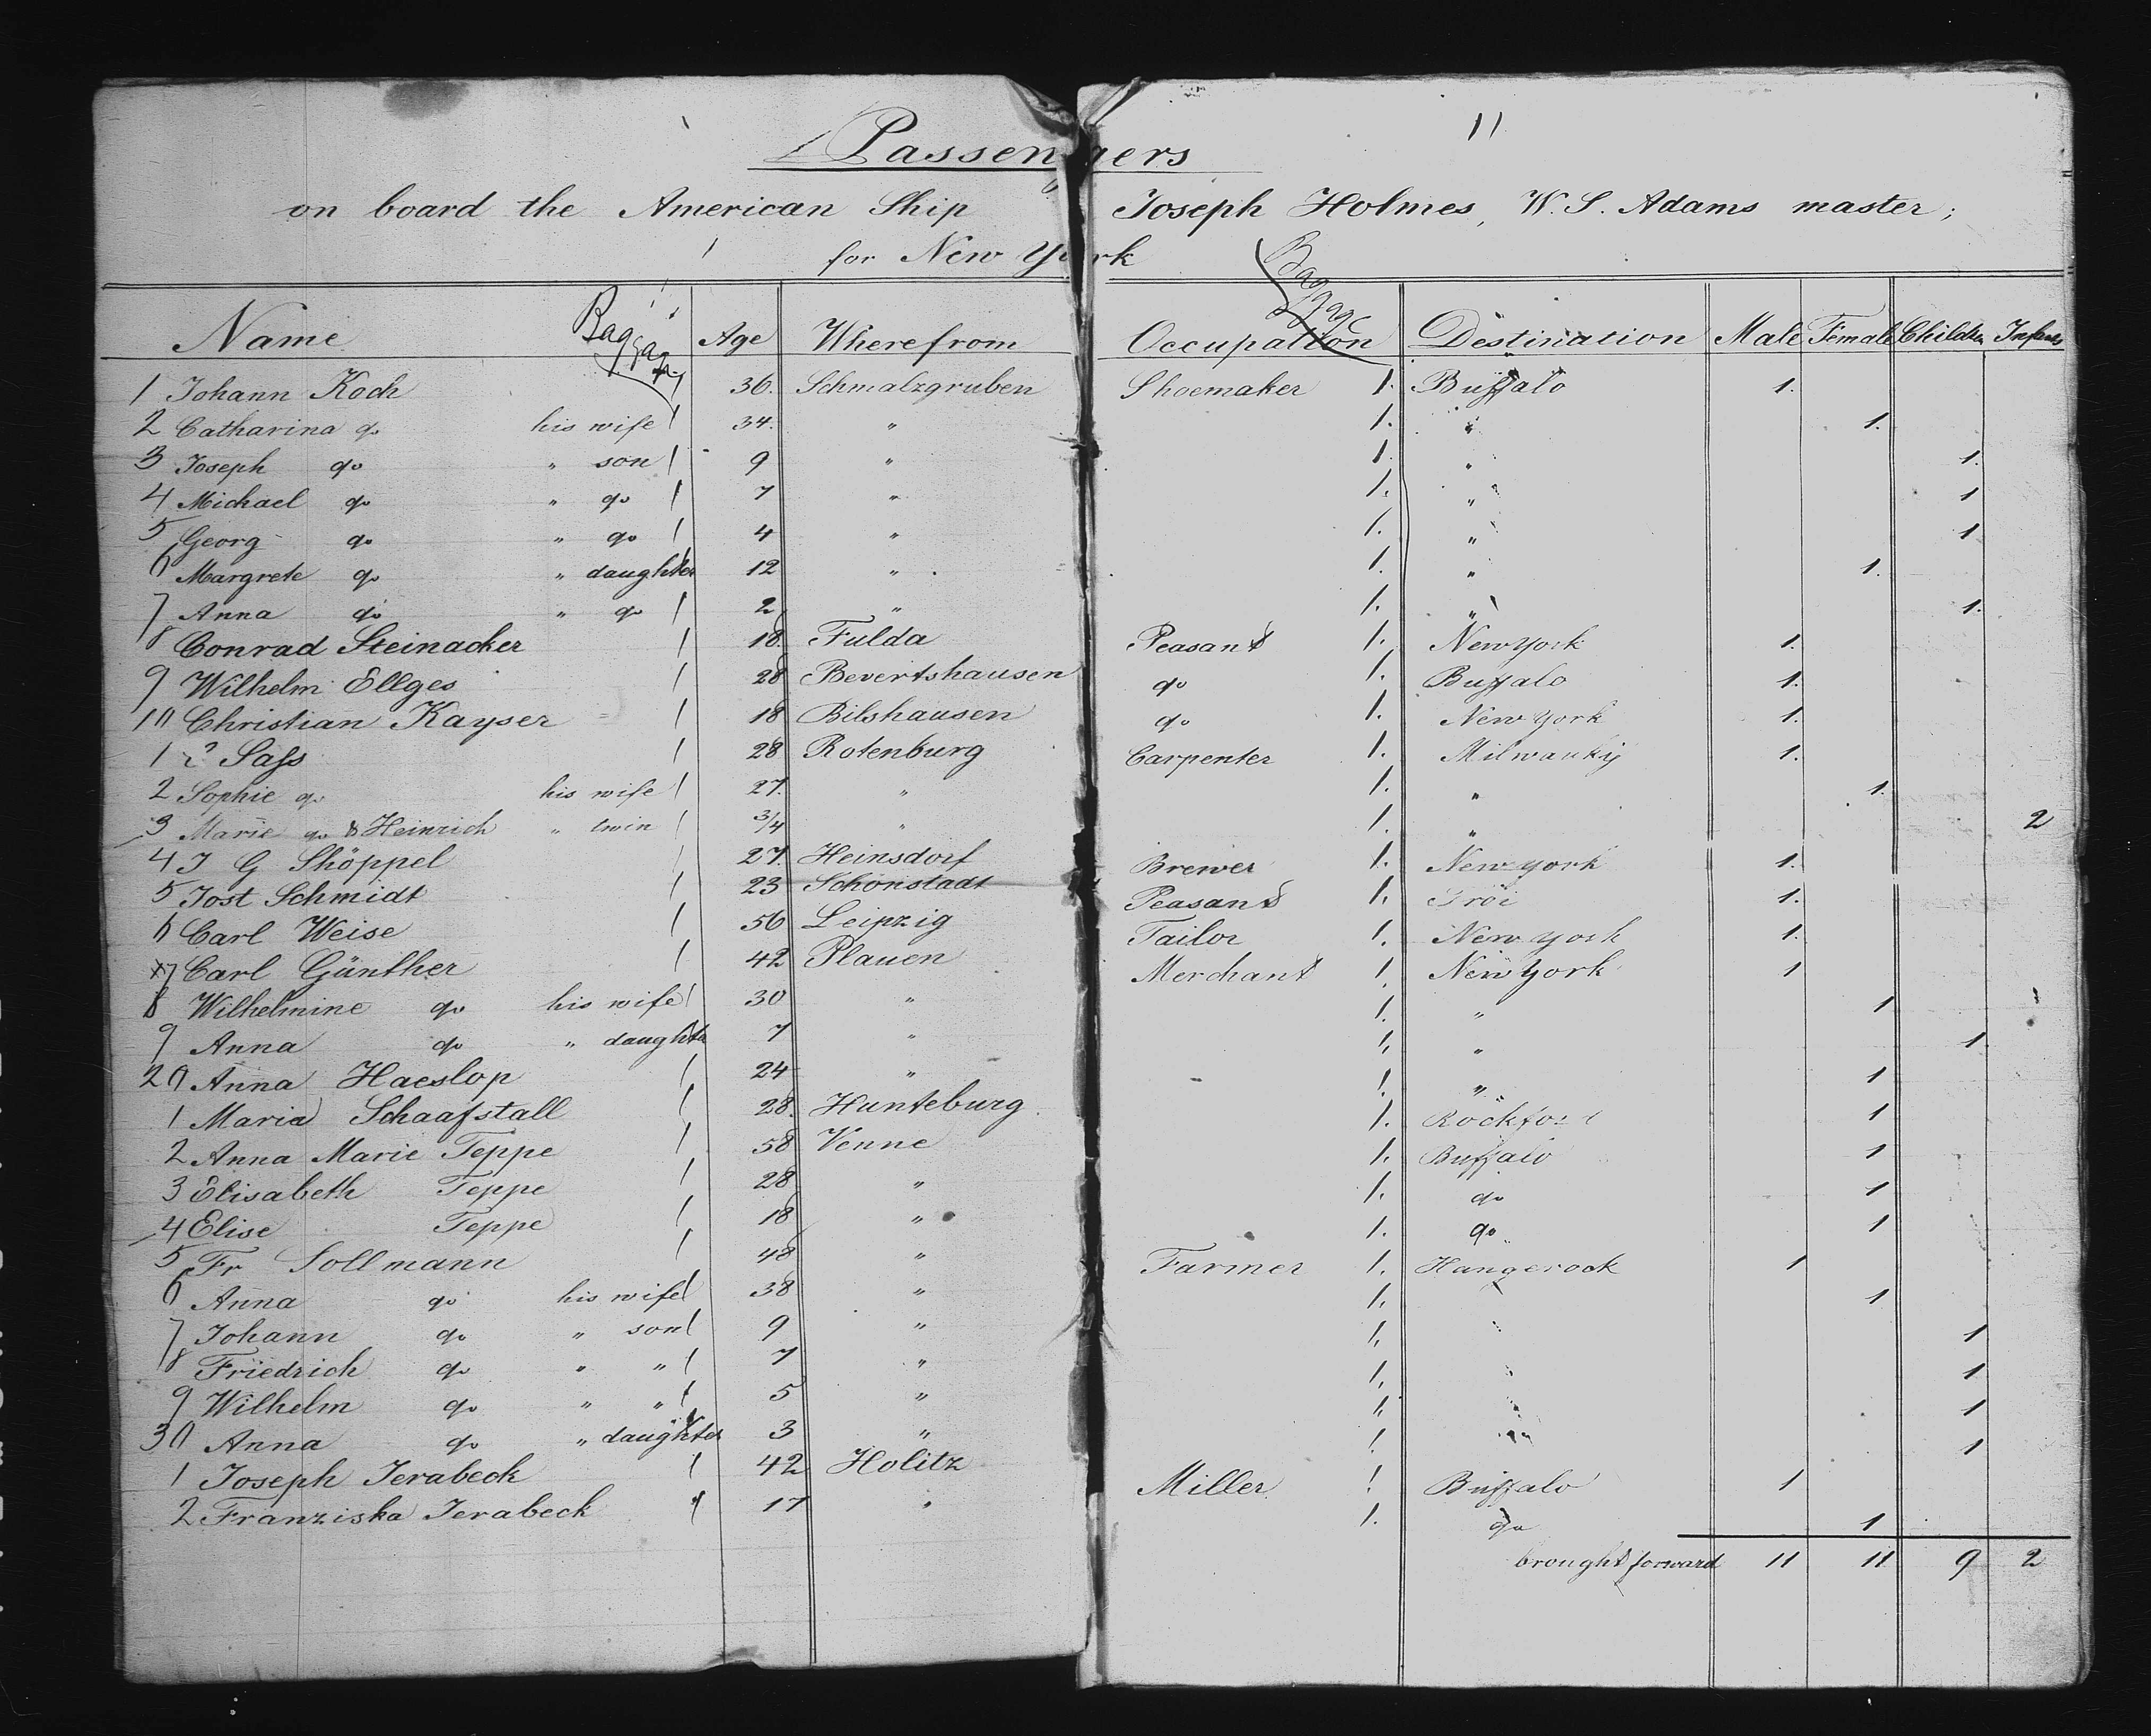 11
Passengers
on board the American Ship Joseph Holmes, W. S. Adams master;
for New York
Name Baggage Age Wherefrom Occupation Baggage Destination Male Female Childn Infants
1 Johann Koch 1 36. Schmalzgruben Shoemaker 1. Buffalo 1.
2 Catharina do his wife 1 34. " 1. " 1.
3 Joseph do " son 1 9 " 1. " 1.
4 Michael do " do 1 7 " 1. " 1
5 Georg do " do 1 4 " 1. " 1
6 Margrete do " daughter 12 " 1. " 1.
7 Anna do " do 1 2 " 1. " 1.
8 Conrad Steinacker 1 18. Fulda Peasant 1. New York 1.
9 Wilhelm Ellges 1 28 Bevertshausen do 1. Buffalo 1.
10 Christian Kayser 1 18 Bilshausen do 1. New York 1.
1 ? Sass 1 28 Rotenburg Carpenter 1. Milwauky 1.
2 Sophie do his wife 1 27. " 1. " 1.
3 Marie do & Heinrich " twin 1 3/4 " 1. " 2
4 J G Shöppel 1 27. Heinsdorf Brewer 1. New York 1.
5 Jost Schmidt 1 23 Schönstadt Peasant 1. Troi 1.
6 Carl Weise 1 56 Leipzig Tailor 1. New York 1.
x7 Carl Günther 1 42 Plauen Merchant 1. New York 1
8 Wilhelmine do his wife 1 30 " 1. " 1
9 Anna do " daughter 7 " 1. " 1
20 Anna Haeslop 1 24 " 1. " 1
1 Maria Schaafstall 1 28. Hunteburg 1. Rockford 1
2 Anna Marie Teppe 1 58 Venne 1. Buffalo 1
3 Elisabeth Teppe 1 28 " 1. do 1
4 Elise Teppe 1 18 " 1. do 1
5 Fr Sollmann 1 48 " Farmer 1. Hangerock 1
6 Anna do his wife 1 38 " 1. 1
7 Johann do " son 1 9 " 1. 1
8 Friedrich do " " 1 7 " 1. 1
9 Wilhelm do " " 1 5 " 1. 1
30 Anna do " daughter 3 " 1. 1
1 Joseph Jerabeck 1 42 Holitz Miller 1 Buffalo 1
2 Franziska Jerabeck 1 17 " 1. do 1
brought forward 11 11 9 2